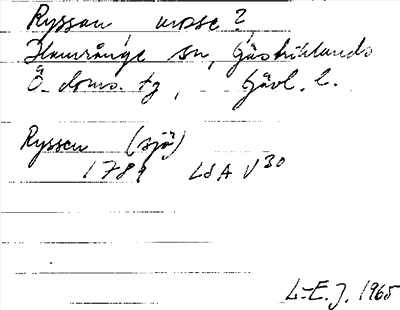 Ryssen, mosse ?
Hamrånge sn, Gästriklands
Ö. doms. tg, Gävl. l.
Ryssen (sjö)
1789 LSA V30
L-E. J. 1965